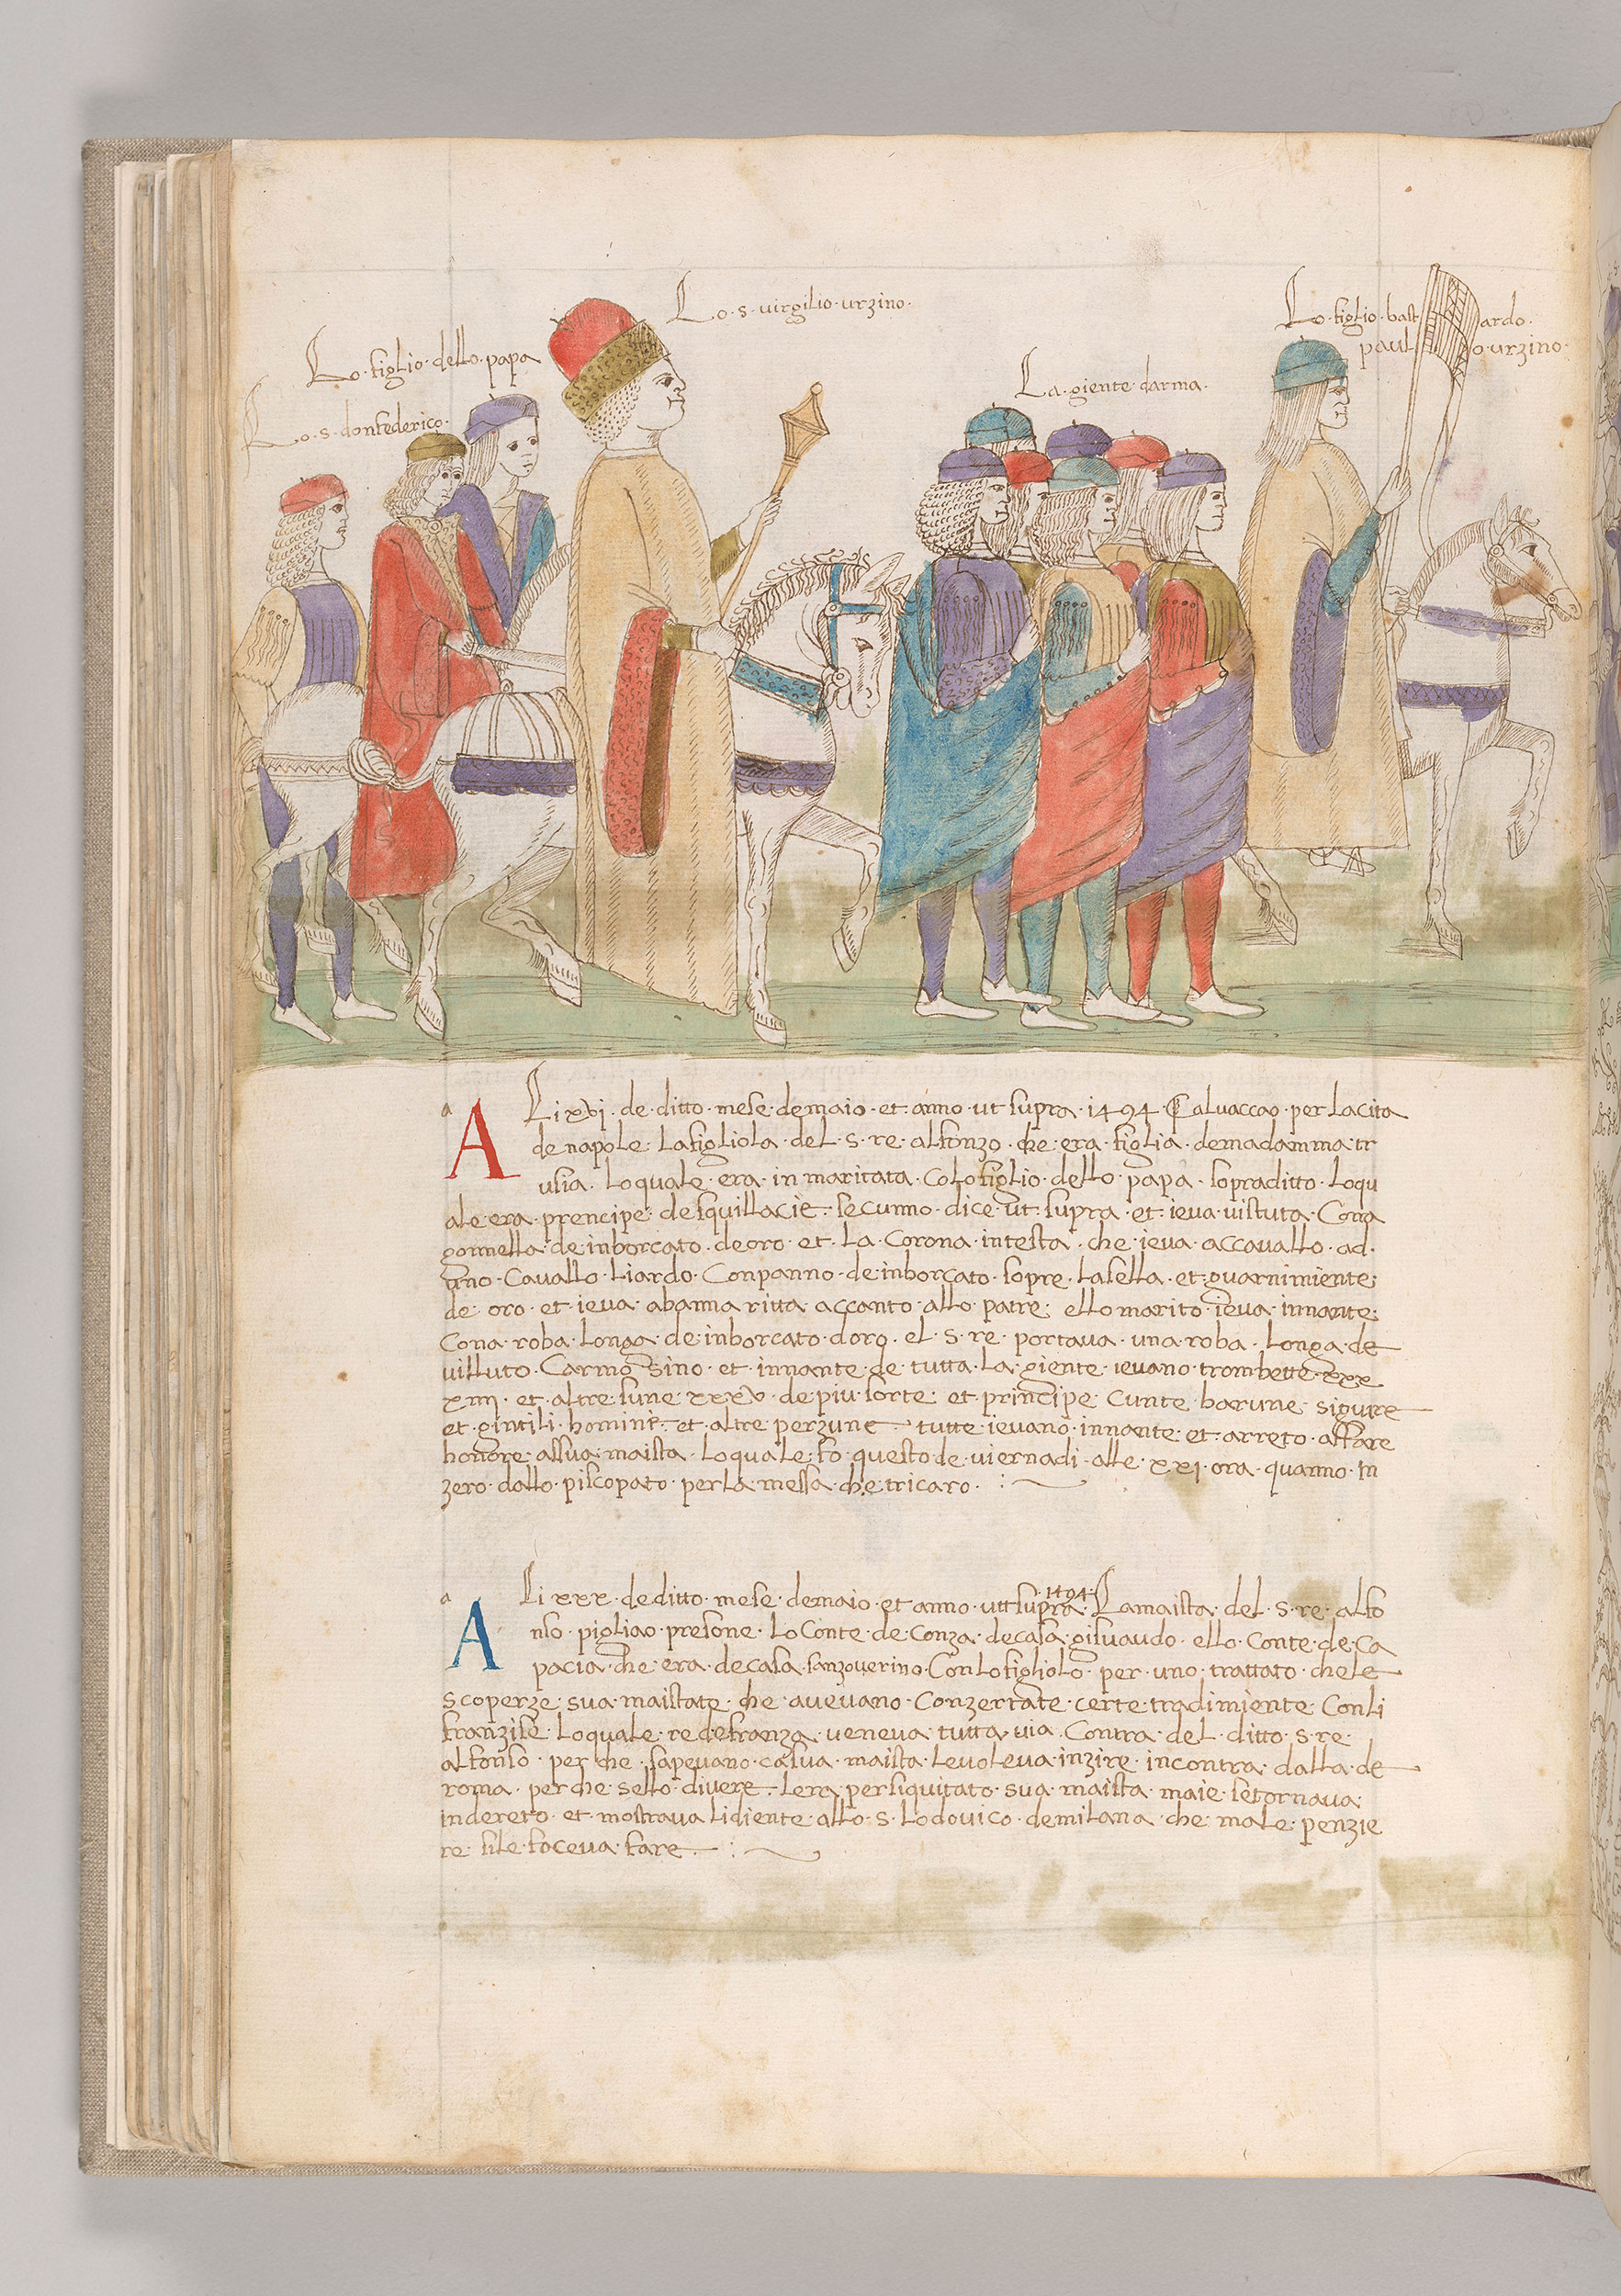 Lo·s·virgilio·urzino·
Lo·figlio·bastardo·
paulo·urzino·
Lo·figlio·dello·papa
La·giente·darma·
Lo·s·donfederico·
a
ALi xvi·de·ditto·mese·demaio·et·anno·ut supra·1494·Caluaccao·per Lacita
de napole·Lafigliola·del·s·re·alfonzo·che·era·figlia·demadamma·tr
usia·loquale·era·in maritata·Colo figlio·dello·papa·sopraditto·Loqu
ale·era·prencipe·desquillacie·secunno·dice·ut·supra·et·ieva·uistuta·Cona
gonnella·de inborcato·deoro·et·La·Corona·intesta·che·ieva·accavallo·ad·
uno·Cavallo·Liardo·Conpanno·de inborcato·sopre·lasella·et·guarnimiente·
de·oro·et·ieua·abanna ritta·accanto·allo·patre·ello marito·ieua·innante·
Cona·roba·Longa·de·inborcato·doro·el·s·re·portaua·una·roba·Longa·de
uilluto·Carmosino·et·innante·de·tutta·La·giente·ieuano·trombette·xxx
xiiii·et·altre·sune·xxxv·de piu·sorte·et·principe·Cunte·barune·sigure
et·gintili·homini·et·altre·perzune·tutte·ieuano·innante·et·arreto·affare
honore·assua·maista·Loquale·fo·questo·de·uiernadi·alle·xxi·ora·quanno·in
zero·dallo·piscopato·perla·messa·che·tricaro·
a
ALi xxx·de ditto·mese·demaio·et anno·utt supra·1494·Lamaista·del·s·re·alfo
nso·pigliao·presone·Lo Conte·de·Conza·decasa·gisuaudo·ello·Conte·de·Ca
pacia·che·era·decasa·sanzouerino·Con Lo figliolo·per·uno·trattato·chele
scoperze·sua·maistate·che·aueuano·Conzertate·certe·tradimiente·Conli
franzise·Loquale·re defranza·ueneua·tutta·uia·Contra·del·ditto·s·re·
alfonso·per che·sapeuano·casua·maista·Leuoleua·inzire·incontra·dalla·de
roma·perche·sello·diuere·Lera·persiquitato·sua·maista·maie·setornaua·
indereto·et·mostraua·Lidiente·allo·s·Lodouico·demilana·che·male·penzie
re·sile·foceua·fare